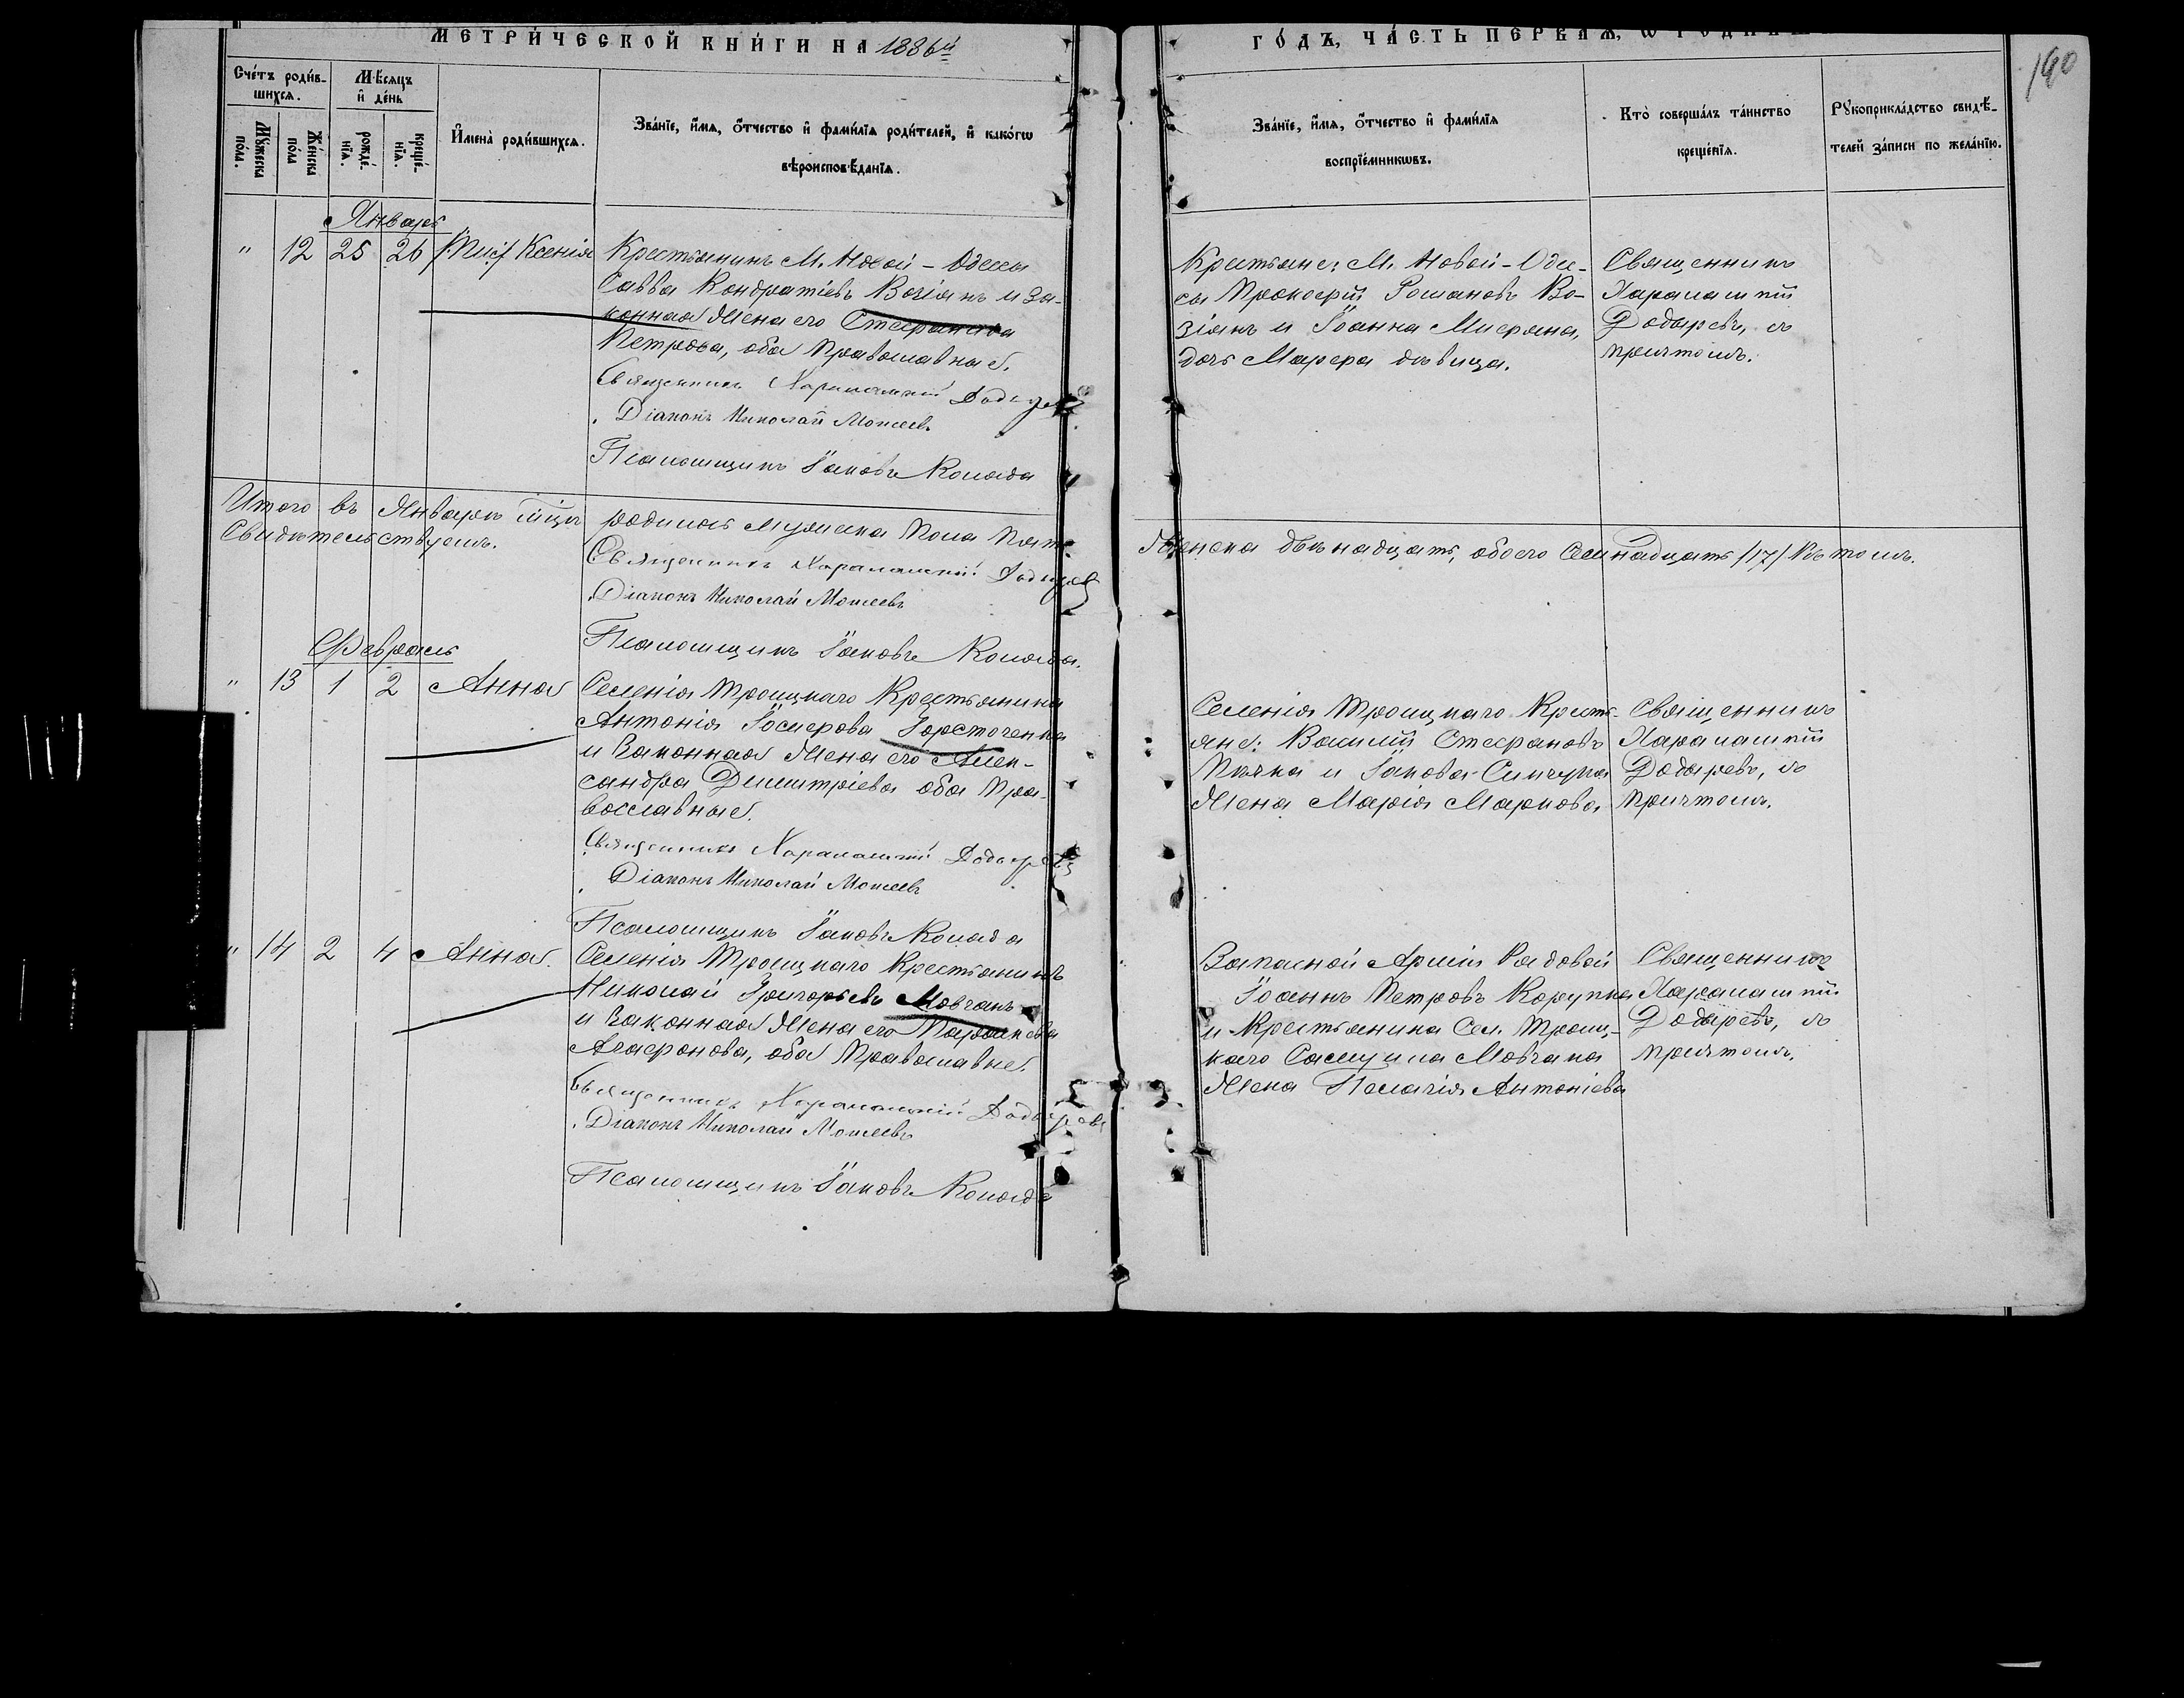 МЕТРИ́ЧЕСКОЙ КНИ́ГИ НА 1886й
ГО́ДЪ, ЧА́СТЬ ПЕРВАѦ, Ѡ
190
Сче́тъ роди́в-
шихсѧ.
Мѣ́сѧцъ
и҆ де́нь
Мꙋ́жеска
по́ла.
Же́нска
по́ла
рожде́-
нїѧ.
креще́-
нїѧ.
И҆мена̀ роди́вшихсѧ.
Зва́нїе, и҆́мѧ, ѻ҆́тчество и҆ фами́лїѧ роди́телей, и҆ како́гѡ
вѣроисповѣ́данїѧ.
Зва́нїе, и҆́мѧ, ѻ҆́тчество и҆ фами́лїѧ
воспрїе́мникѡвъ.
Кто̀ соверша́лъ та́инство
креще́нїѧ.
Рꙋкоприкла́дство свидѣ́-
телей за́писи по жела́нїю.
Январь
" 12 25 26 Ксенія
Крестьянинъ М. Новой-Одессы
Савва Кондратіевъ Возіянъ и за-
конная Жена его Стефанида
Петрова, оба Православные.
Священникъ Харалампій Додыревъ
Діаконъ Николай Моисеевъ
Псаломщикъ Іаковъ Коляда
Крестьяне: М. Новой-Одес-
сы Прокофій Романовъ Во-
зіянъ и Іоанна Мифряна,
дочь Марфа дѣвица.
Священникъ
Харалампій
Додыревъ, съ
причтомъ.
Итого въ Январѣ мцѣ родилось мужеска пола пять
Женска двѣнадцать, обоего Семнадцать /17/ Въ томъ
Свидѣтельствуемъ.
Священникъ Харалампій Додыревъ
Діаконъ Николай Моисеевъ
Псаломщикъ Іаковъ Коляда.
Февраль
" 13 1 2 Анна
Селенія Троицкаго Крестьянина
Антонія Іосифова
и Законная Жена его Алек-
сандра Димитріева оба Пра-
вославные.
Священникъ Харалампій Додыревъ
Діаконъ Николай Моисеевъ
Псаломщикъ Іаковъ Коляда
Селенія Троицкаго Кресть-
яне: Василій Стефановъ
и Іакова
Жена Марія Маркова
Священникъ
Харалампій
Додыревъ, съ
причтомъ.
" 14 2 4 Анна.
Селенія Троицкаго Крестьянинъ
Николай Григорьевъ Мовчанъ
и Законная Жена его Параскева
Агафонова, оба Православные.
Священникъ Харалампій Додыревъ
Діаконъ Николай Моисеевъ
Псаломщикъ Іаковъ Коляда
Запасной Арміи Рядовой
Іоаннъ Петровъ Корупка
и Крестьянина Сел. Троиц-
каго Самуила Мовчана
Жена Пелагія Антоніева
Священникъ
Харалампій
Додыревъ, съ
причтомъ.